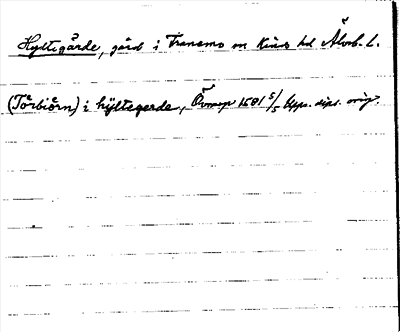 Hyltegärde, gård i Tranemo sn Kinds hd Älvsb. l.
(Törbiörn) i hÿltegerde, 1681 5/5 Upps. dipl. orig.